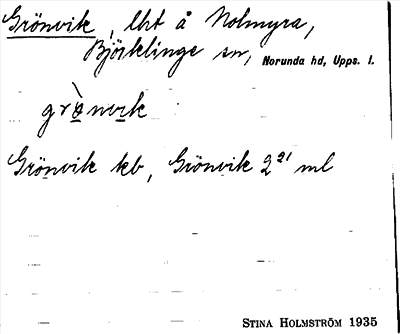 Grönvik, lht å Nolmyra,
Björklinge sn, Norunda hd, Upps. l.
grø̀nvik
Grönvik kb, Grönvik 2²¹ ml
STINA HOLMSTRÖM 1935